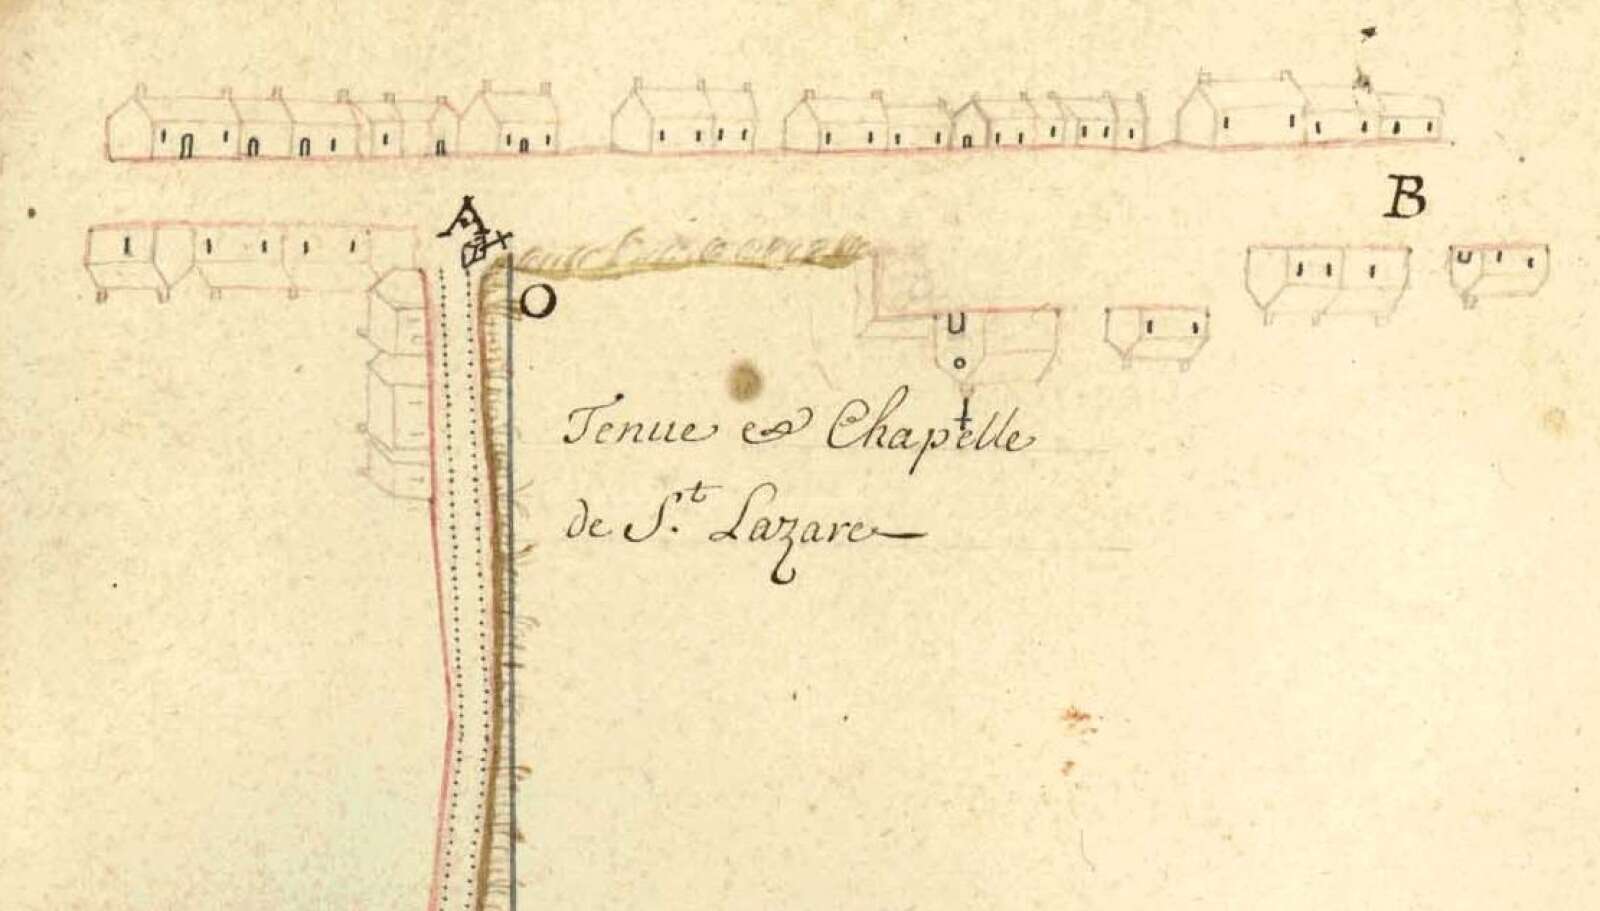 A
B
O
Tenue et Chapelle
de S.t Lazare